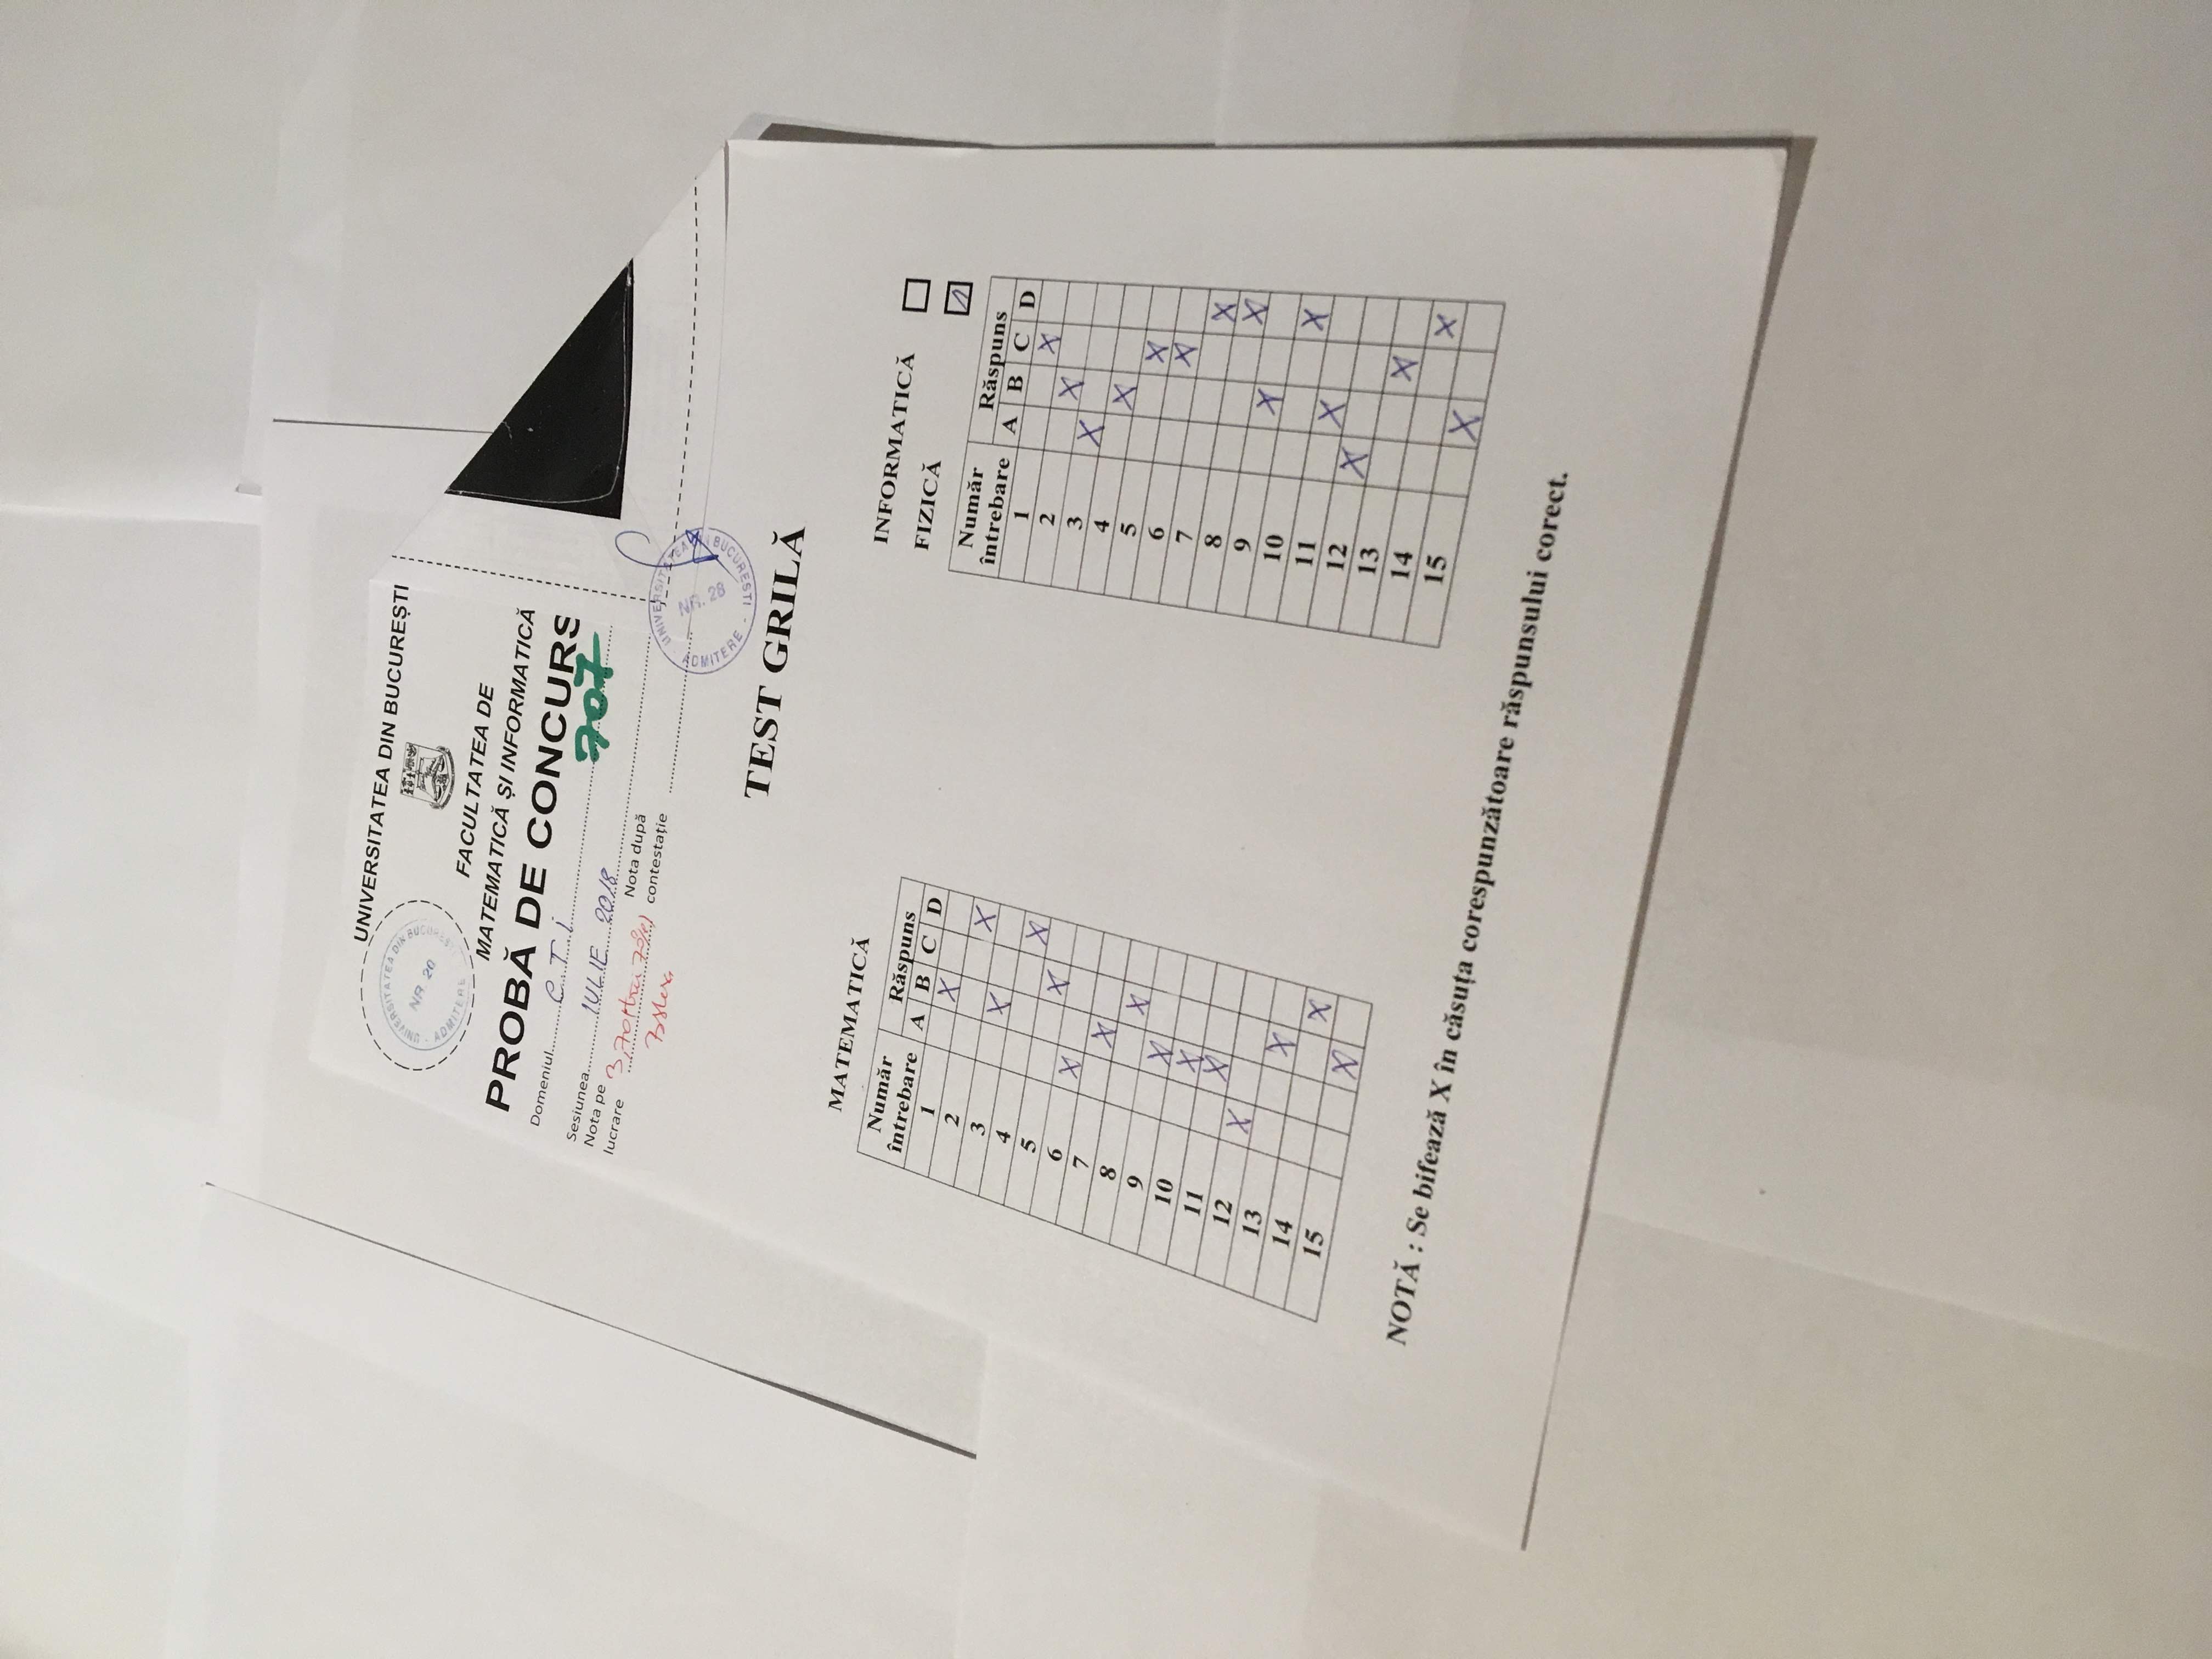 UNIVERSITATEA DIN BUCUREȘTI
UNIVERSITATEA DIN BUCUREȘTI
ADMITERE
NR. 20
FACULTATEA DE
MATEMATICĂ ȘI INFORMATICĂ
PROBĂ DE CONCURS
Domeniul C.T.I
707
Sesiunea IULIE 2018
Nota pe lucrare 3,70 (trei 70%)
Nota după contestație
UNIVERSITATEA DIN BUCURESTI - ADMITERE
NR. 28
TEST GRILĂ
MATEMATICĂ
Număr întrebare Răspuns
A B C D
1 X
2 X
3 X
4 X
5 X
6 X
7 X
8 X
9 X
10 X
11 X
12 X
13 X
14 X
15 X
INFORMATICĂ
FIZICĂ
Număr întrebare Răspuns
A B C D
1 X
2 X
3 X
4 X
5 X
6 X
7 X
8 X
9 X
10 X
11 X
12 X
13 X
14 X
15 X
NOTĂ : Se bifează X în căsuța corespunzătoare răspunsului corect.